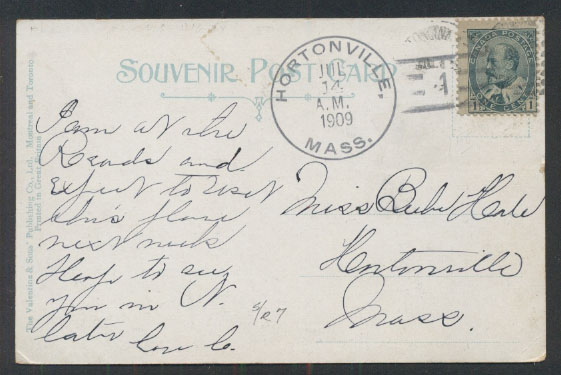 SOUVENIR POST CARD
HORTONVILLE,
JUL
14
A.M.
1909
MASS.
CANADA POSTAGE
1 1
I am at the
Roads and
expect to visit
this place
next week
Hope to see
you in N.
later
Miss Hale
Hortonville
Mass.
The Valentine & Sons' Publishing Co., Ltd. Montreal and Toronto
Printed in Great Britain